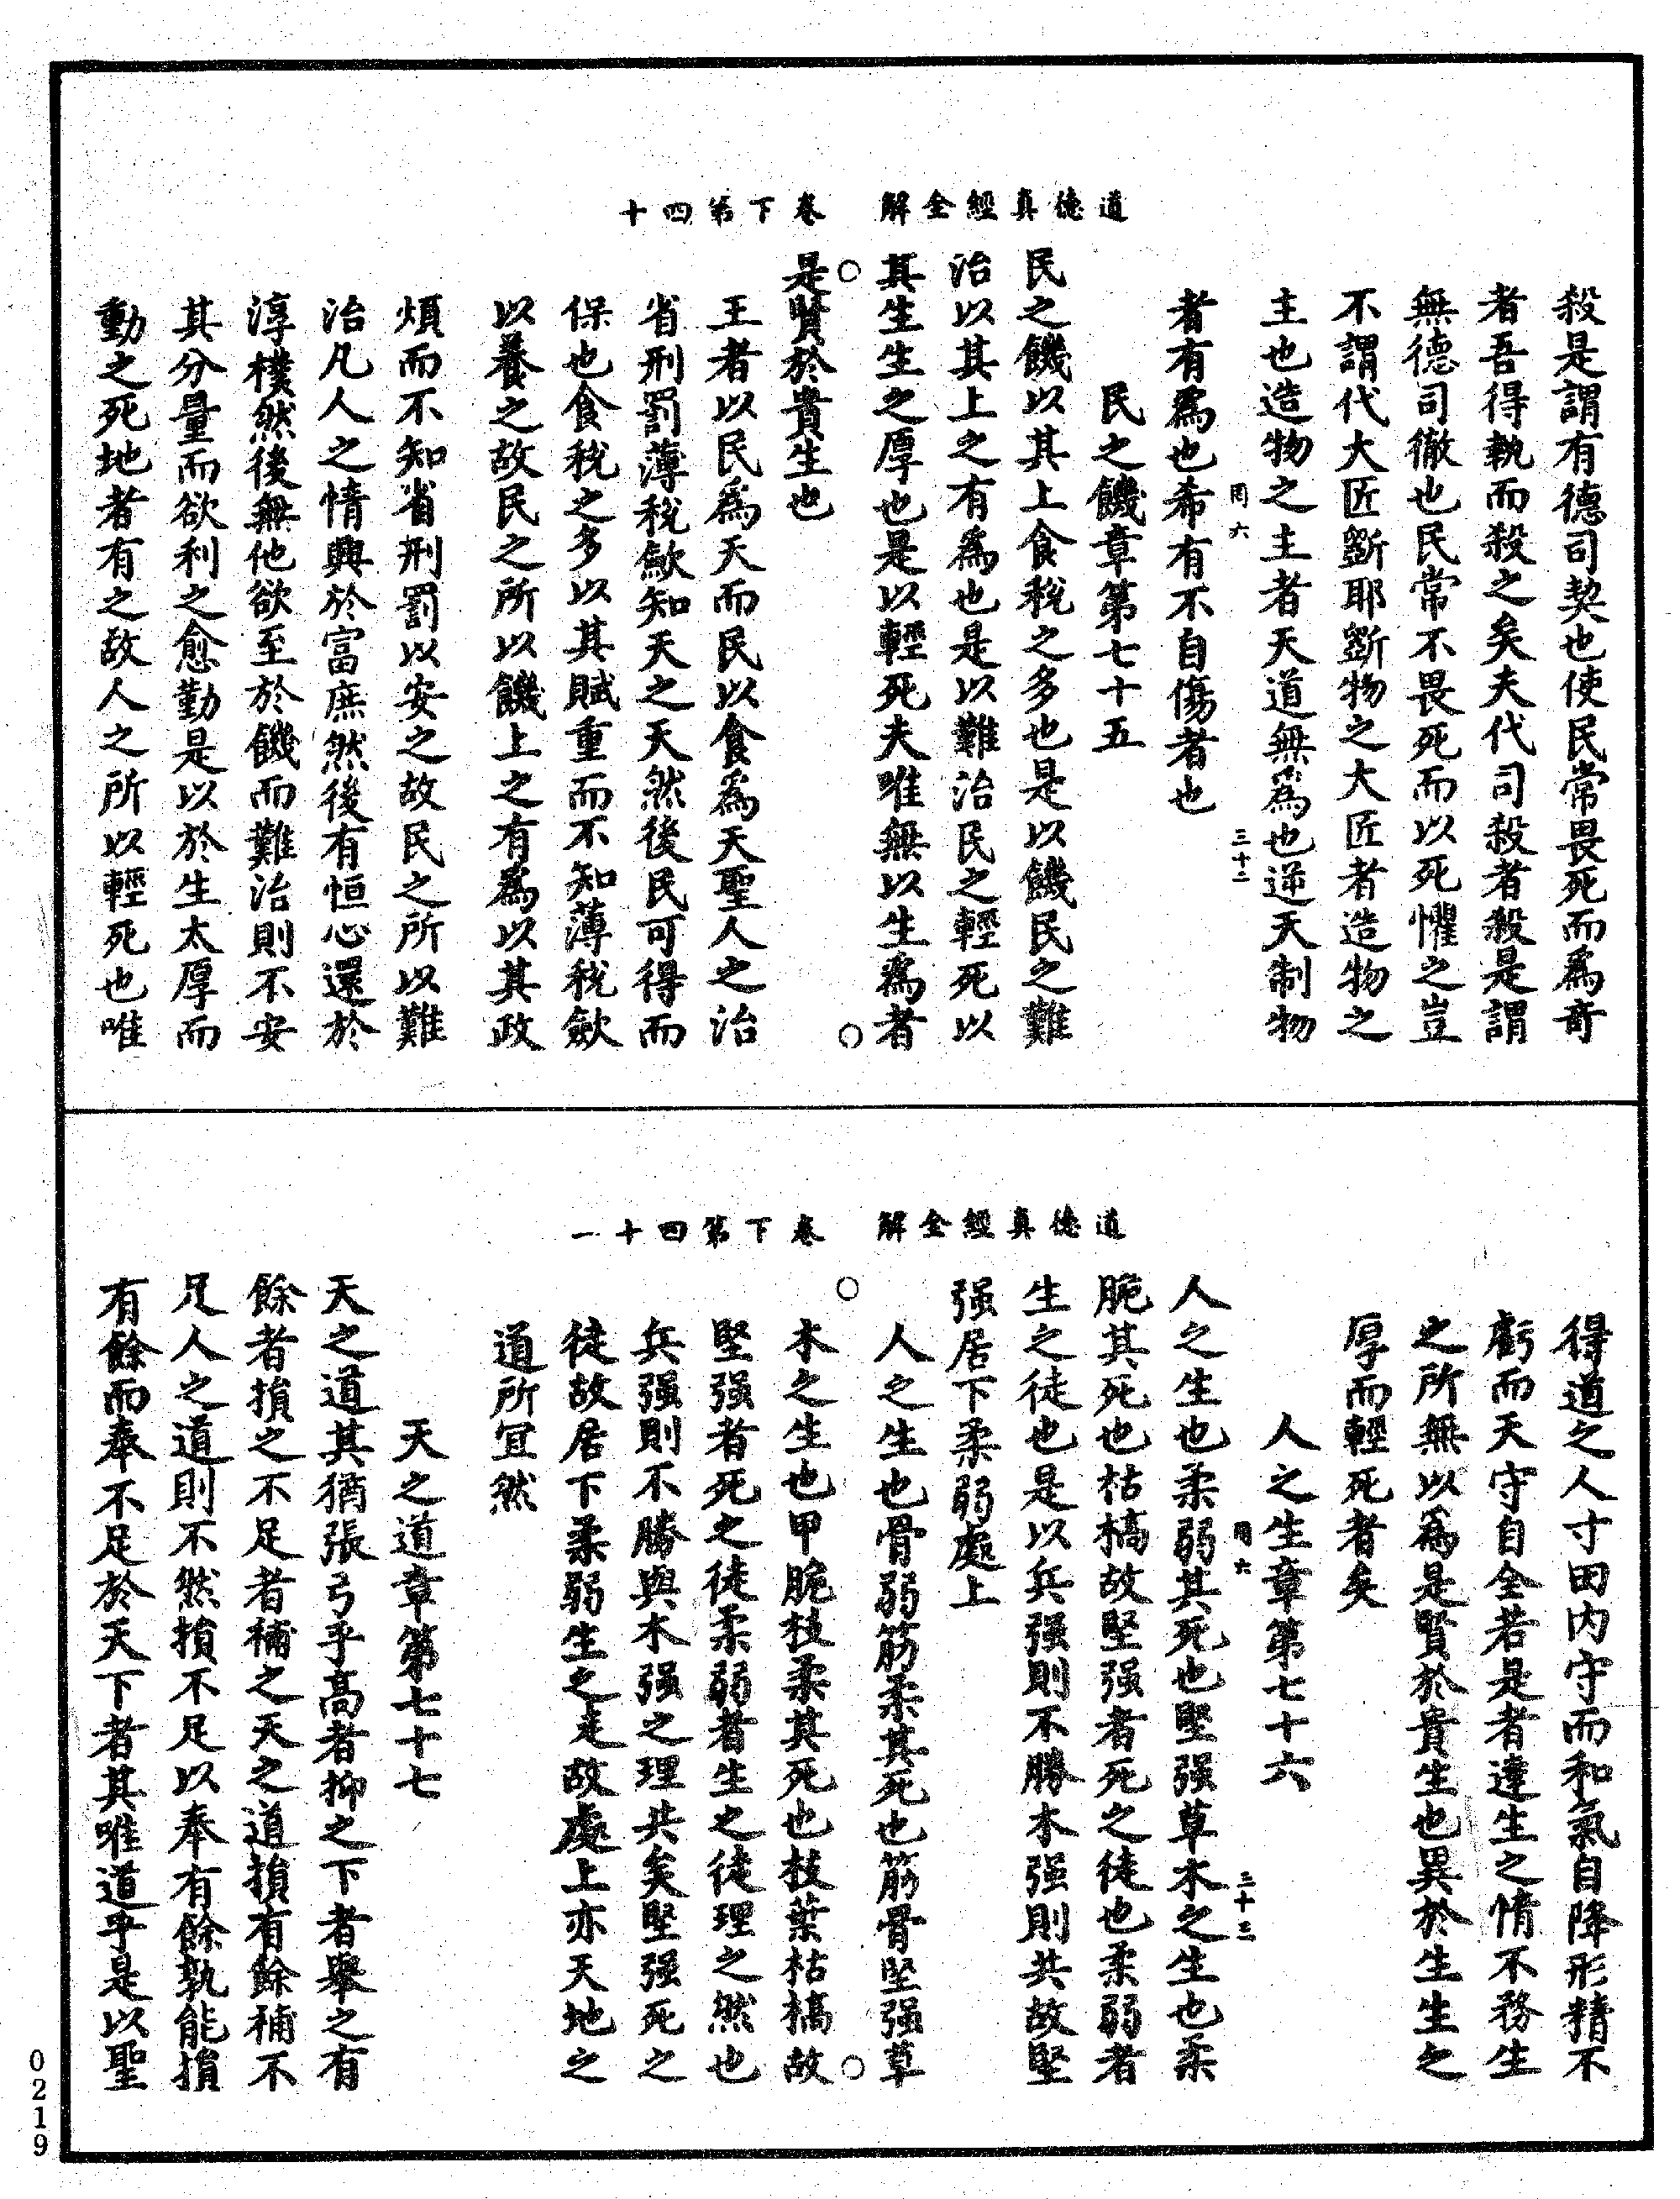 道德真經全解　卷下第四十
殺是謂有德司契也使民常畏死而爲奇
者吾得執而殺之矣夫代司殺者殺是謂
無德司徹也民常不畏死而以死懼之豈
不謂代大匠斲耶斲物之大匠者造物之
主也造物之主者天道無爲也逆天制物
罔六　三十二
者有爲也希有不自傷者也
民之饑章第七十五
民之饑以其上食稅之多也是以饑民之難
治以其上之有爲也是以難治民之輕死以
其生生之厚也是以輕死夫唯無以生爲者
是賢於貴生也
王者以民爲天而民以食爲天聖人之治
省刑罰薄稅歛知天之天然後民可得而
保也食稅之多以其賦重而不知薄稅歛
以養之故民之所以饑上之有爲以其政
煩而不知省刑罰以安之故民之所以難
治凡人之情興於富庶然後有恒心還於
淳樸然後無他欲至於饑而難治則不安
其分量而欲利之愈勤是以於生太厚而
動之死地者有之故人之所以輕死也唯
道德真經全解　卷下第四十一
得道之人寸田內守而和氣自降形精不
虧而天守自全若是者達生之情不務生
之所無以爲是賢於貴生也異於生生之
厚而輕死者矣
人之生章第七十六
罔六　三十三
人之生也柔弱其死也堅强草木之生也柔
脆其死也枯槁故堅强者死之徒也柔弱者
生之徒也是以兵强則不勝木强則共故堅
强居下柔弱處上
人之生也骨弱筋柔其死也筋骨堅强草
木之生也甲脆枝柔其死也枝葉枯槁故
堅强者死之徒柔弱者生之徒理之然也
兵强則不勝與木强之理共矣堅强死之
徒故居下柔弱生之走故處上亦天地之
道所宜然
天之道章第七十七
天之道其猶張弓乎高者抑之下者舉之有
餘者損之不足者補之天之道損有餘補不
足人之道則不然損不足以奉有餘孰能損
有餘而奉不足於天下者其唯道乎是以聖
0219